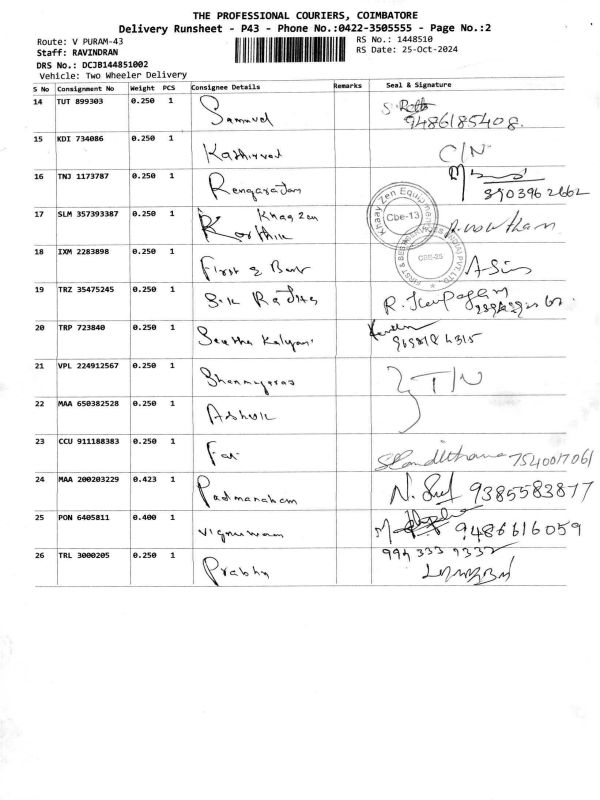 THE PROFESSIONAL COURIERS, COIMBATORE
Delivery Runsheet - P43 - Phone No.:0422-3505555 - Page No.:2
Route: V PURAM-43
RS No.: 1448510
Staff: RAVINDRAN
RS Date: 25-Oct-2024
DRS No.: DCJB144851002
Vehicle: Two Wheeler Delivery
S No Consignment No Weight PCS Consignee Details Remarks Seal & Signature
14 TUT 899303 0.250 1 Samuvel
9486185408.
15 KDI 734086 0.250 1 Kathirvel C/N
16 TNJ 1173787 0.250 1 Rengarajan
17 SLM 357393387 0.250 1 Khaazen
Karthik
Khaay Zen Equipments
Cbe-13
18 IXM 2283898 0.250 1 First & Best
CBE-25
19 TRZ 35475245 0.250 1
20 TRP 723840 0.250 1 Seetha Kalyani
21 VPL 224912567 0.250 1 Shanmugaraj
22 MAA 650382528 0.250 1 Ashok
23 CCU 911188383 0.250 1 7540017061
24 MAA 200203229 0.423 1 Padmanaham 9385583877
25 PON 6405811 0.400 1 9486616059
26 TRL 3000205 0.250 1 Prabhu